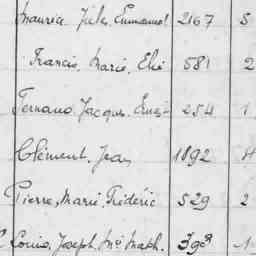 Maurice Jules Emmanuel 2167 5
Francis, Marie, Elie 581 2
Fernand Jacques Ernest 254 1
Clément, Jean 1892 4
Pierre, Marie, Frédéric 529 2
Louis, Joseph, Mie Math. 1